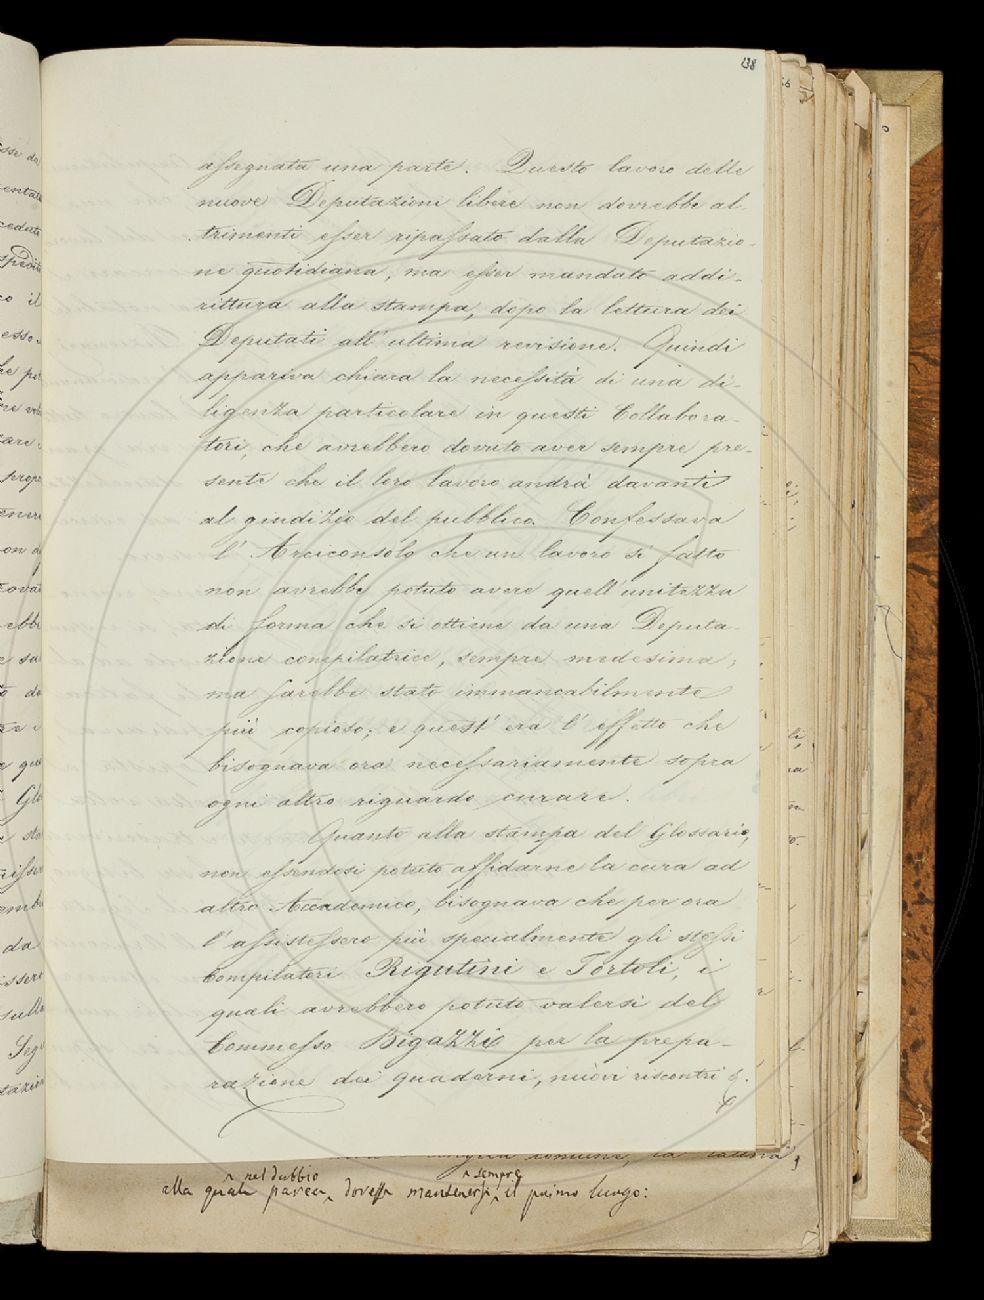 138
assegnata una parte. Questo lavoro delle
nuove Deputazioni libere non dovrebbe al-
trimenti esser ripassato dalla Deputazio-
ne quotidiana, ma esser mandato addi-
rittura alla stampa, dopo la lettura dei
Deputati all'ultima revisione. Quindi
appariva chiara la necessità di una di-
ligenza particolare in questi Collabora-
tori, che avrebbero dovuto aver sempre pre-
sente che il loro lavoro andrà davanti
al giudizio del pubblico. Confessava
l'Arciconsolo che un lavoro sì fatto
non avrebbe potuto avere quell'unitezza
di forma che si ottiene da una Deputa-
zione compilatrice, sempre medesima;
ma sarebbe stato immancabilmente
più copioso; e quest'era l'effetto che
bisognava ora necessariamente sopra
ogni altro riguardo curare.
Quanto alla stampa del Glossario,
non essendosi potuto affidarne la cura ad
altro Accademico, bisognava che per ora
l'assistessero più specialmente gli stessi
Compilatori Rigutini e Tortoli, i
quali avrebbero potuto valersi del
Commesso Bigazzi per la prepa-
razione dei quaderni, nuovi riscontri &.
nel dubbio sempre
alla quale parea, dovesse mantenersi il primo luogo: